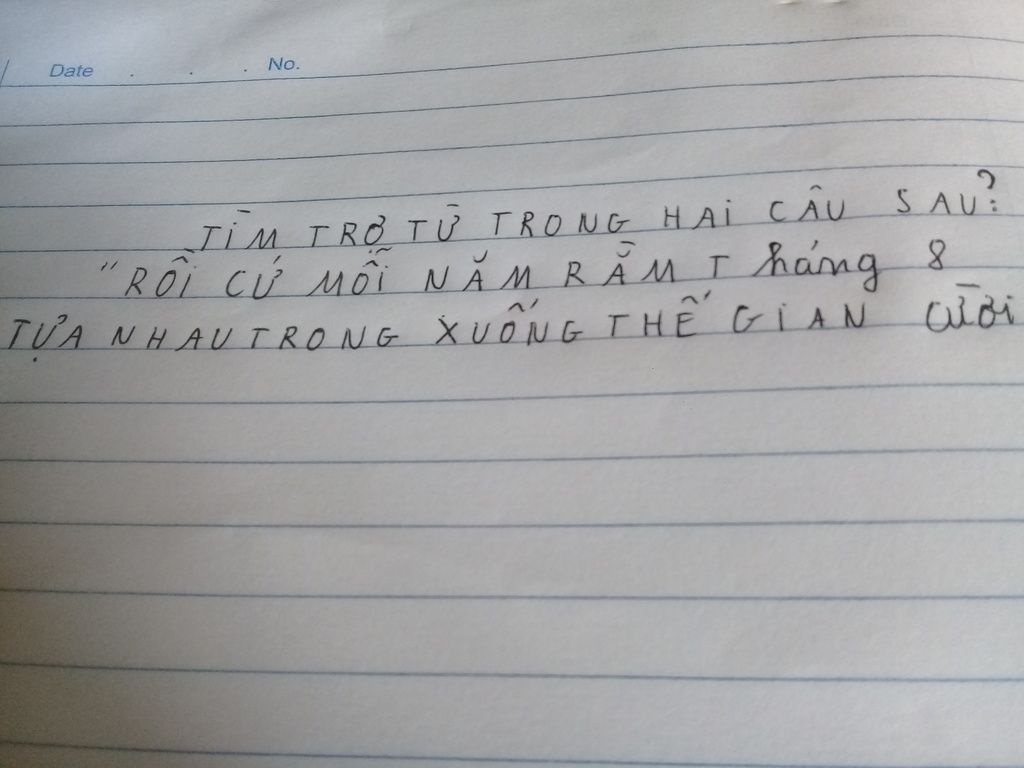 Date . . . No.
TÌM TRỢ TỪ TRONG HAI CÂU SAU?:
"RỒI CỨ MỖI NĂM RẰM THáng 8
TỰA NHAU TRONG XUỐNG THẾ GIAN CƯỜI